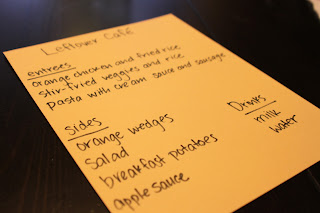 Leftover Café
entrees
orange chicken and fried rice
stir-fried veggies and rice
Pasta with cream sauce and sausage
sides
orange wedges
salad
breakfast potatoes
apple sauce
Drinks
milk
water